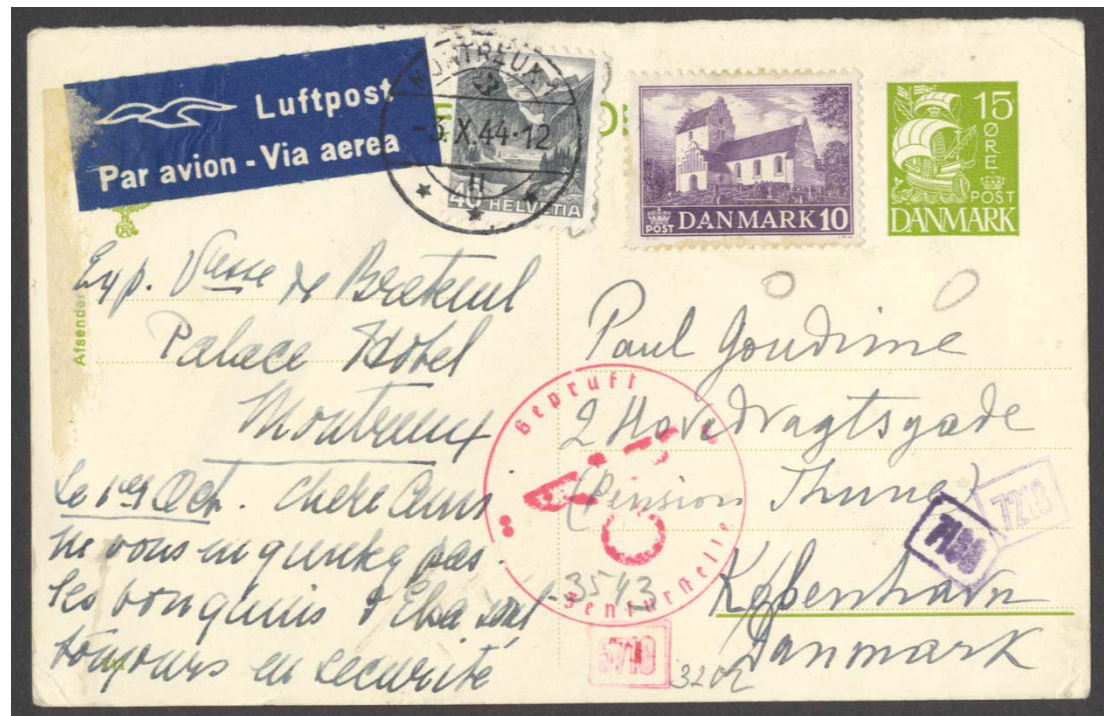 Luftpost
Par avion - Via aerea
MONTREUX 1
-3.X.44-12
40 HELVETIA
POST DANMARK 10
15
ØRE
POST
DANMARK
Afsender
Exp. Vsse de Breteuil
Palace Hôtel
Montreux
Le 1er Oct. Chers Amis
ne vous inquietez pas.
les bouquins d'Elsa sont
toujours en securité
Paul Goudime
2 Hovedvagtsgade
(Pension Thune)
København
Danmark
Geprüft
Zensurstelle
3543
7218
5718
3202